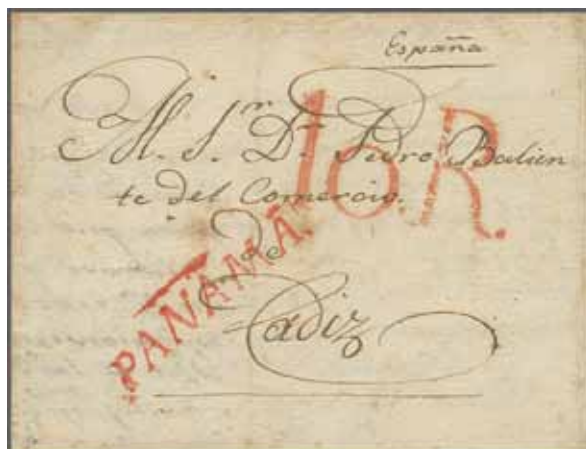 España
Al. S.r D.n Pedro Balien
te del Comercio.
10.R.
de
PANAMÁ
Cadiz